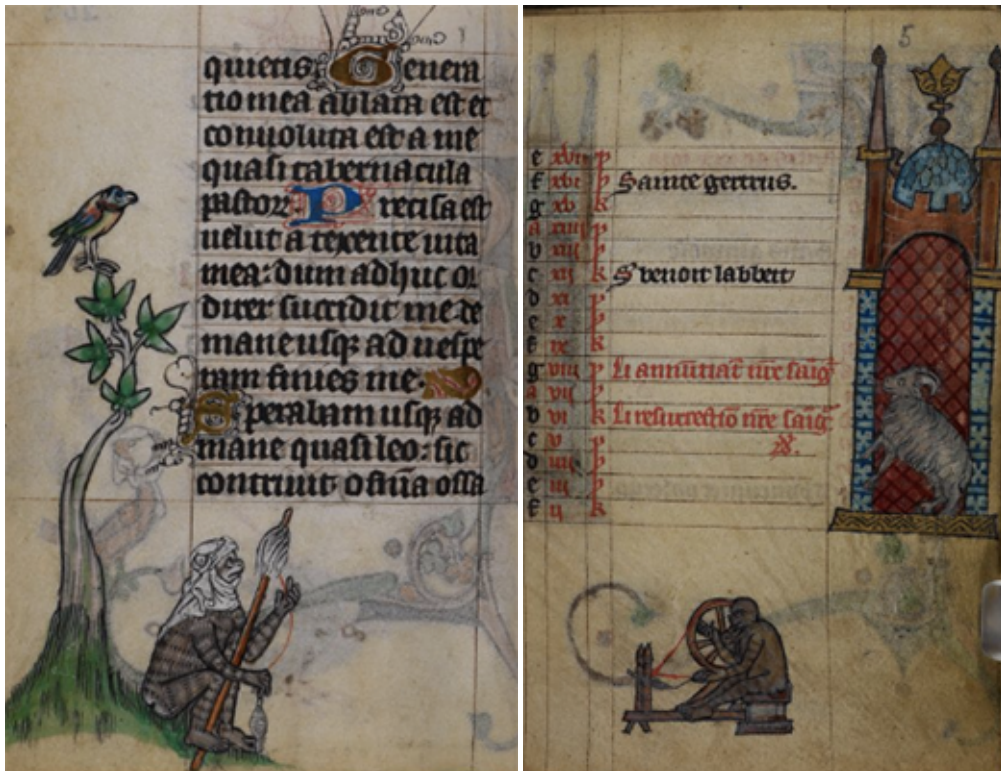 quietis Genera
tio mea ablata est et
conuoluta est a me
quasi tabernacula
pastorꝝ Precisa est
uelut a texente uita
mea: dum adhuc or
direr succidit me de
mane usqꝫ ad uespe
ram finies me.
Sperabam usqꝫ ad
mane quasi leo: sic
contriuit omīa ossa
5
e xvii p
f xvi p Sainte gertrus.
g xv k
a xiiii p
b xiii p
c xii k S benoit labbeit
d xi p
e x p
f ix k
g viii p Li annūtiat̄ nr̄e saīg᷑
a vii p
b vi k Li resurrectiō nr̄e saīg᷑
c v p
d iiii p
e iii p
f ii k